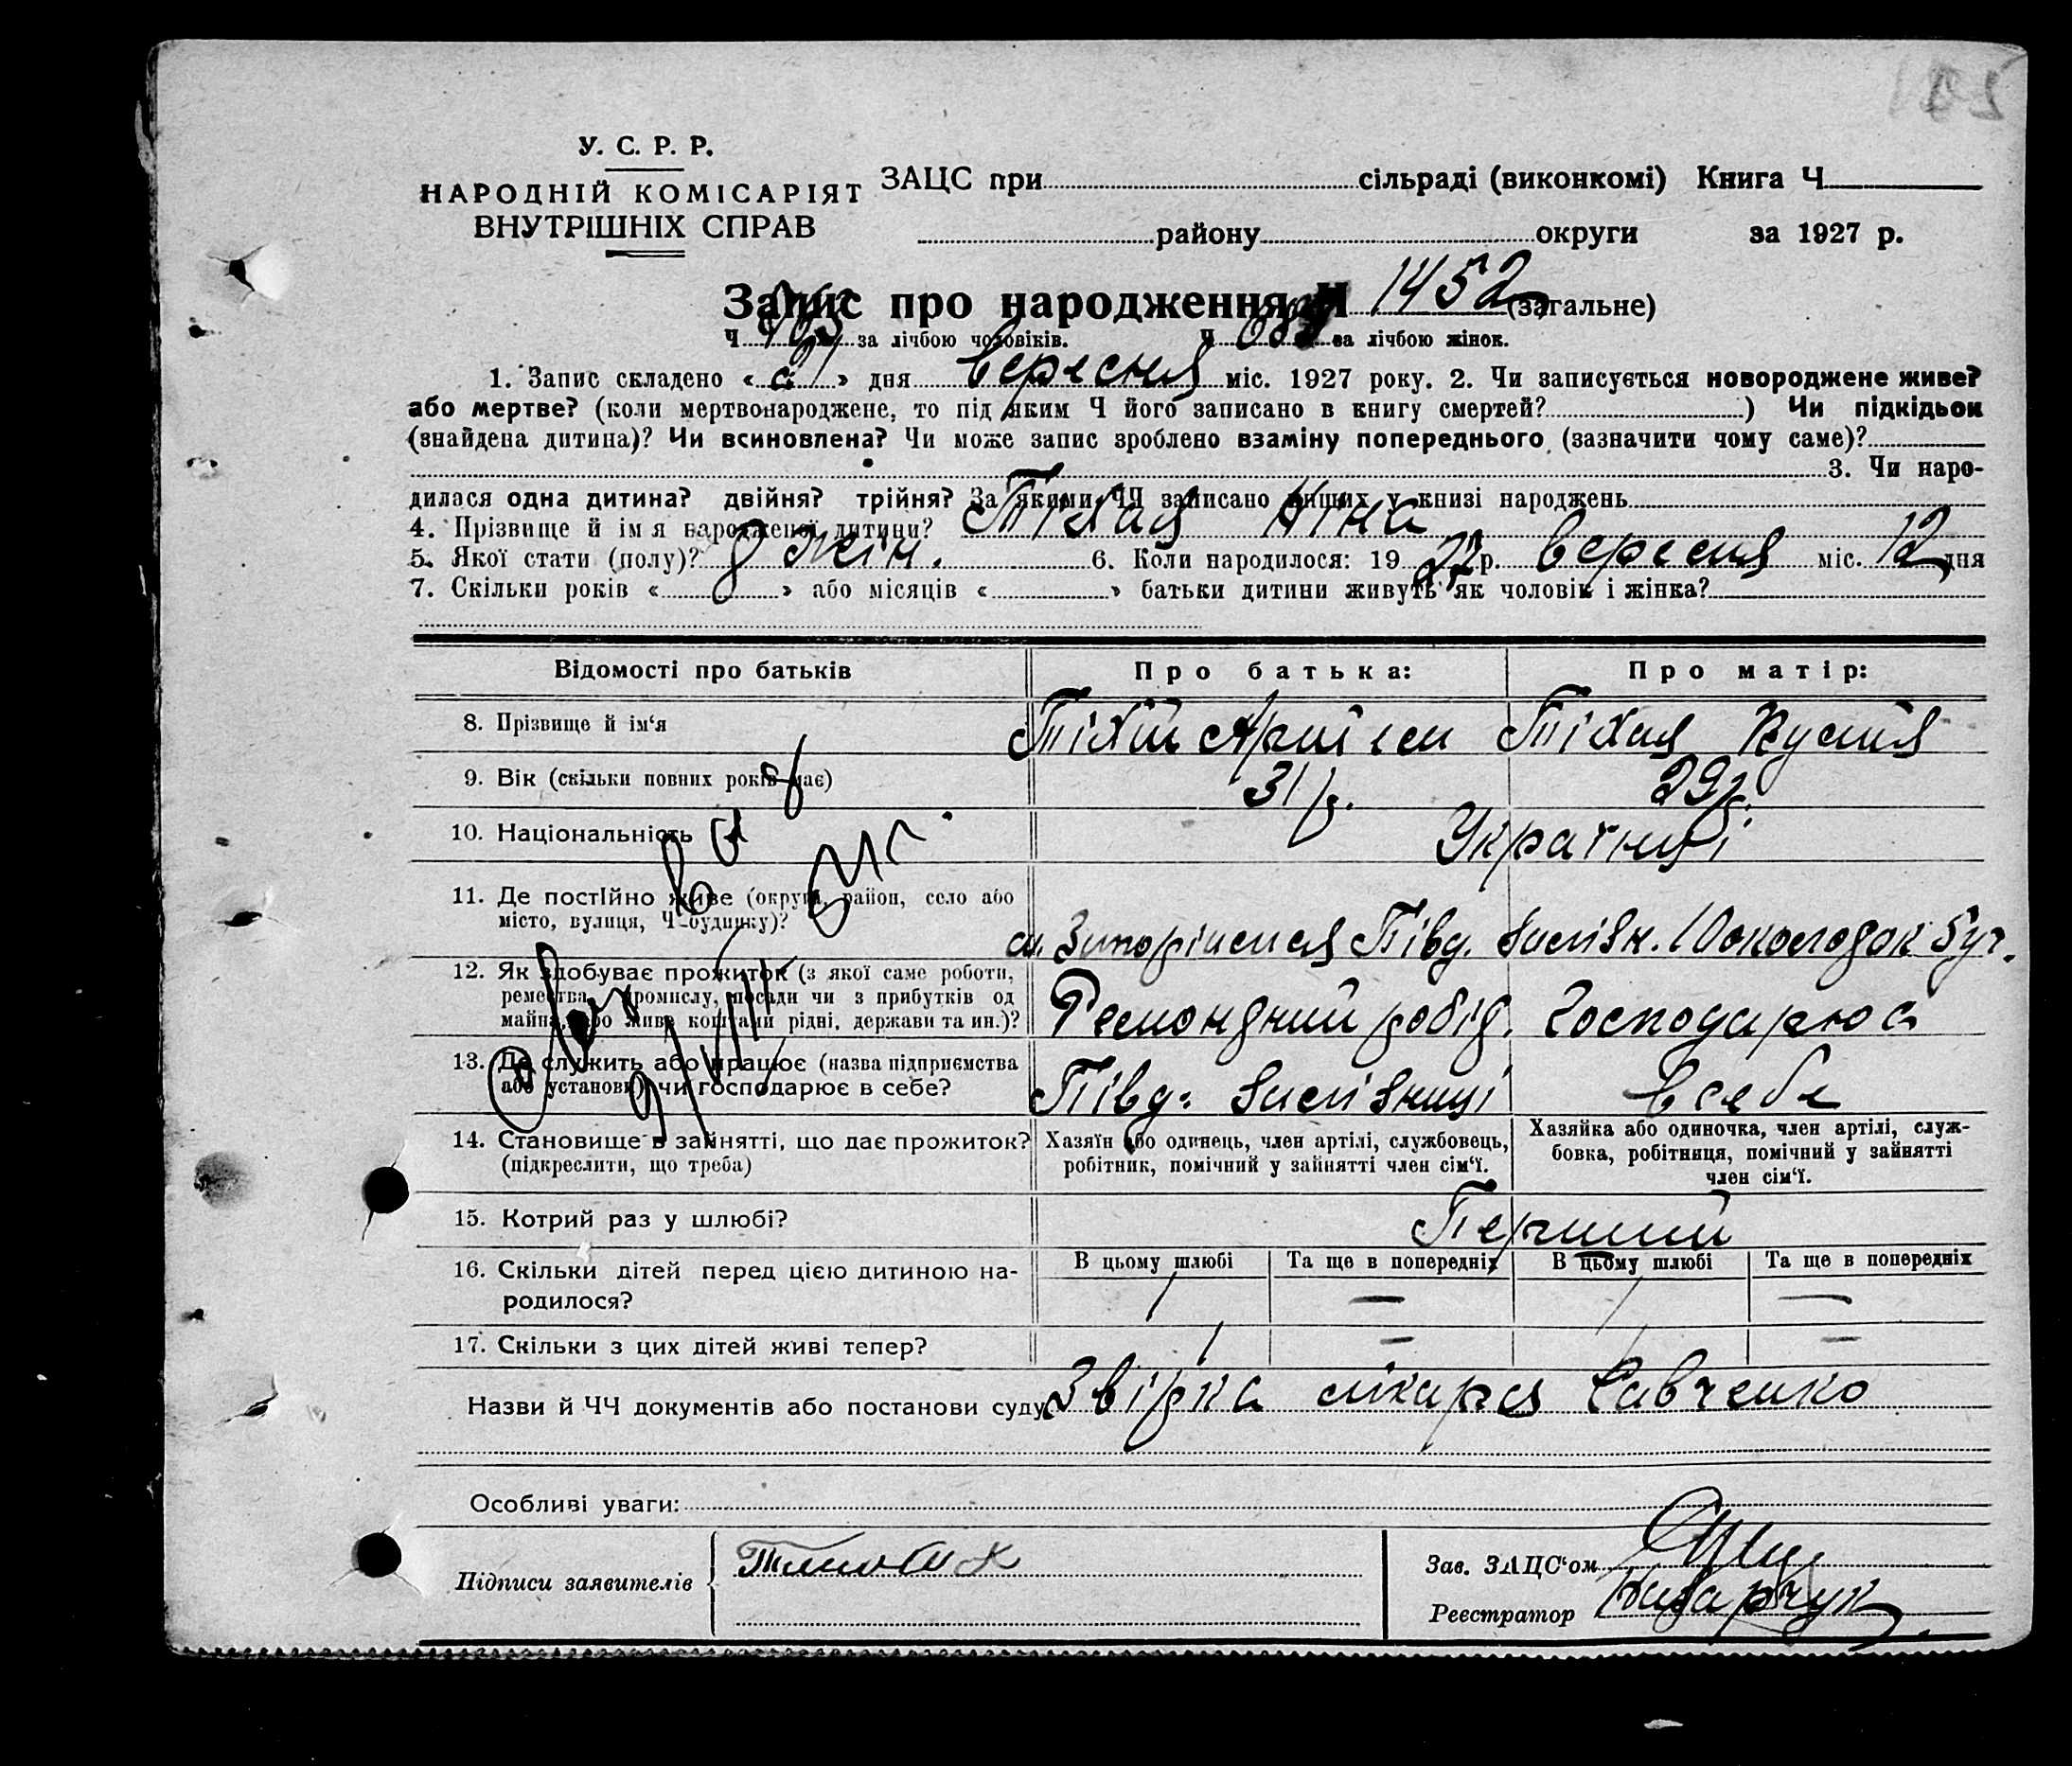 У. С. Р. Р.
НАРОДНІЙ КОМІСАРІЯТ
ВНУТРІШНІХ СПРАВ
ЗАЦС при сільраді (виконкомі) Книга Ч
району округи за 1927 р.
Запис про народження Ч 1452 (загальне)
Ч за лічбою чоловіків. Ч за лічбою жінок.
1. Запис складено « » дня вересня міс. 1927 року. 2. Чи записується новороджене живе?
або мертве? (коли мертвонароджене, то під яким Ч його записано в книгу смертей? ) Чи підкідьок
(знайдена дитина)? Чи всиновлена? Чи може запис зроблено взаміну попереднього (зазначити чому саме)?
3. Чи наро-
дилася одна дитина? двійня? трійня? За якими ЧЧ записано инших у книзі народжень
4. Прізвище й ім'я народженої дитини? Тіхая Ніна
5. Якої стати (полу)? жін. 6. Коли народилося: 19 27 р. вересня міс. 12 дня
7. Скільки років « 8 » або місяців « » батьки дитини живуть як чоловік і жінка?
Відомості про батьків Про батька: Про матір:
8. Прізвище й ім'я Тіхий Артем Тіхая
9. Вік (скільки повних років має) 31 р. 29 р.
10. Національність Українці
11. Де постійно живе (округа, район, село або
місто, вулиця, Ч будинку)?
ст. Запоріжжя Півд.
12. Як здобуває прожиток (з якої саме роботи,
ремества, промислу, посади чи з прибутків од
майна, або живе коштами рідні, держави та ин.)?
Ремондний робід. Господарює
13. Де служить або працює (назва підприємства
або установи) чи господарює в себе?
Півд. Залізниці в себе
14. Становище в зайнятті, що дає прожиток?
(підкреслити, що треба)
Хазяїн або одинець, член артілі, службовець,
робітник, помічний у зайнятті член сім'ї.
Хазяйка або одиночка, член артілі, служ-
бовка, робітниця, помічний у зайнятті
член сім'ї.
15. Котрий раз у шлюбі? Перший
16. Скільки дітей перед цією дитиною на-
родилося?
В цьому шлюбі Та ще в попередніх В цьому шлюбі Та ще в попередніх
1 — 1 —
17. Скільки з цих дітей живі тепер? 1 — 1 —
Назви й ЧЧ документів або постанови суду Звідка лікаря Савченко
Особливі уваги:
Підписи заявителів
Зав. ЗАЦС'ом
Реєстратор